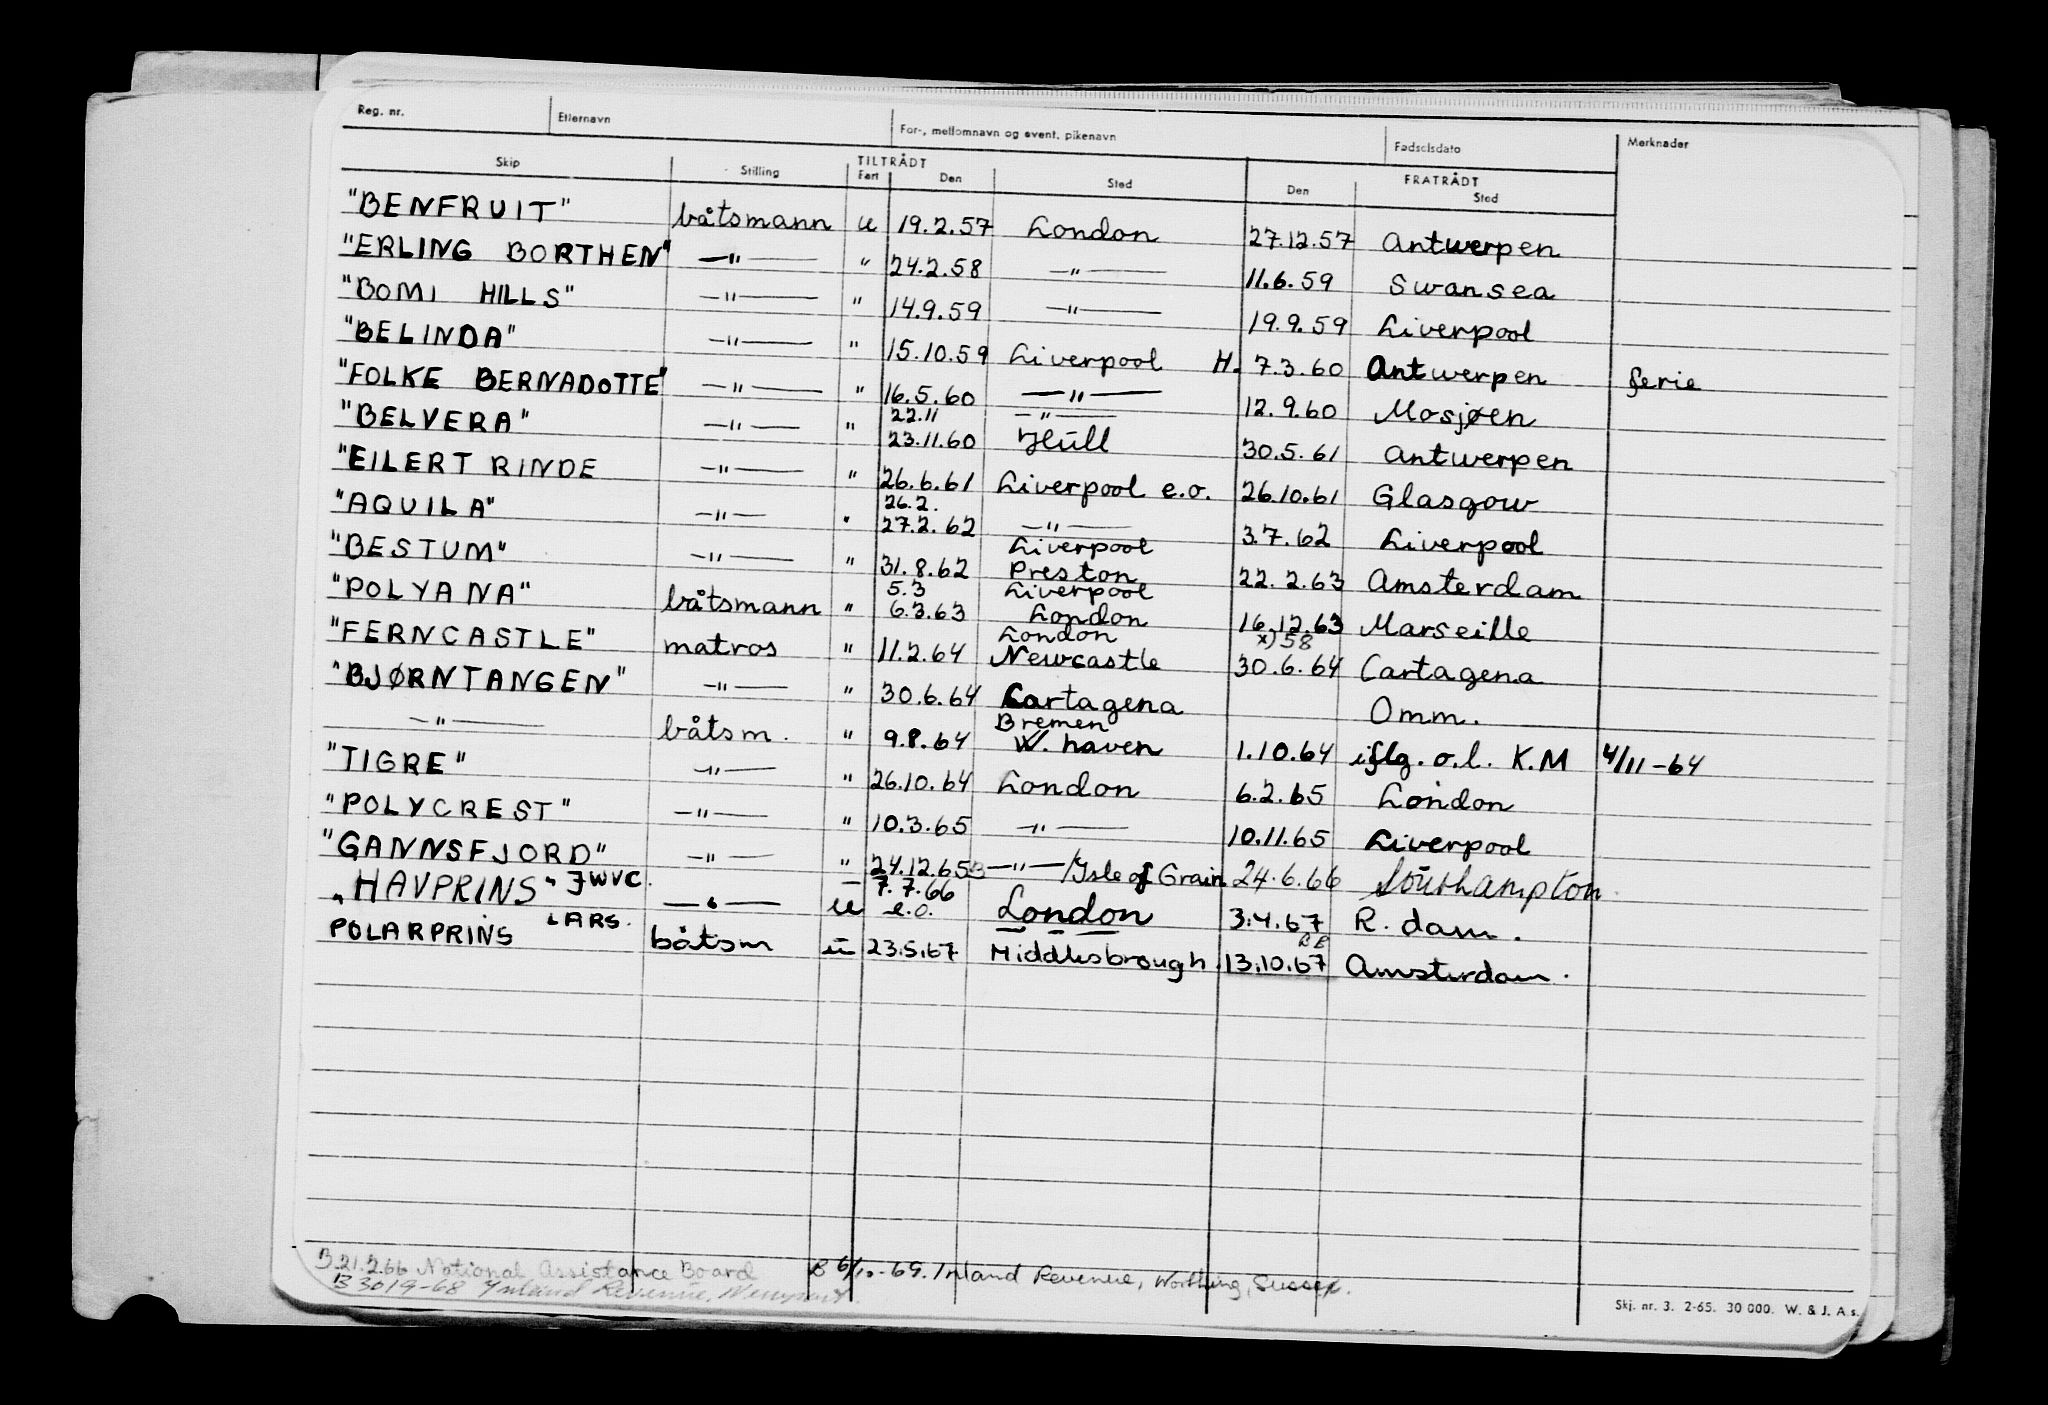 Reg. nr. Etternavn For-, mellomnavn og event. pikenavn Fødselsdato Merknader
Skip Stilling TILTRÅDT FRATRÅDT
Fart Den Sted Den Sted
"BENFRUIT" båtsmann u 19.2.57 London 27.12.57 Antwerpen
"ERLING BORTHEN" —"— " 24.2.58 —"— 11.6.59 Swansea
"BOMI HILLS" —"— " 14.9.59 —"— 19.9.59 Liverpool
"BELINDA" —"— " 15.10.59 Liverpool H. 7.3.60 Antwerpen ferie
"FOLKE BERNADOTTE" —"— " 16.5.60 —"— 12.9.60 Mosjøen
"BELVERA" —"— " 22.11 23.11.60 —"— Hull 30.5.61 Antwerpen
"EILERT RINDE —"— " 26.6.61 Liverpool e.o. 26.10.61 Glasgow
"AQUILA" —"— " 26.2. 27.2.62 —"— 3.7.62 Liverpool
"BESTUM" —"— " 31.8.62 Liverpool Preston 22.2.63 Amsterdam
"POLYANA" båtsmann " 5.3 6.3.63 Liverpool London 16.12.63 Marseille
"FERNCASTLE" matros " 11.2.64 London Newcastle x) 58 30.6.64 Cartagena
"BJØRNTANGEN" —"— " 30.6.64 Cartagena Omm.
—"— båtsm. " 9.8.64 Bremen W. haven 1.10.64 iflg. o.l. K.M 4/11-64
"TIGRE" —"— " 26.10.64 London 6.2.65 London
"POLYCREST" —"— " 10.3.65 —"— 10.11.65 Liverpool
"GANNSFJORD" —"— " 24.12.65 —"— /Isle of Grain 24.6.66 Southampton
"HAVPRINS" JWVC. —"— u 7.7.66 e.o. London 3.4.67 R.dam.
POLARPRINS LARS. båtsm u 23.5.67 Middlesbrough 13.10.67 Amsterdam.
B 21.2.66 National Assistance Board B 6/10-69. Inland Revenue, Worthing, Sussex.
B 3019-68 Inland Revenue, Newport.
Skj. nr. 3. 2-65. 30 000. W. & J. A.s.